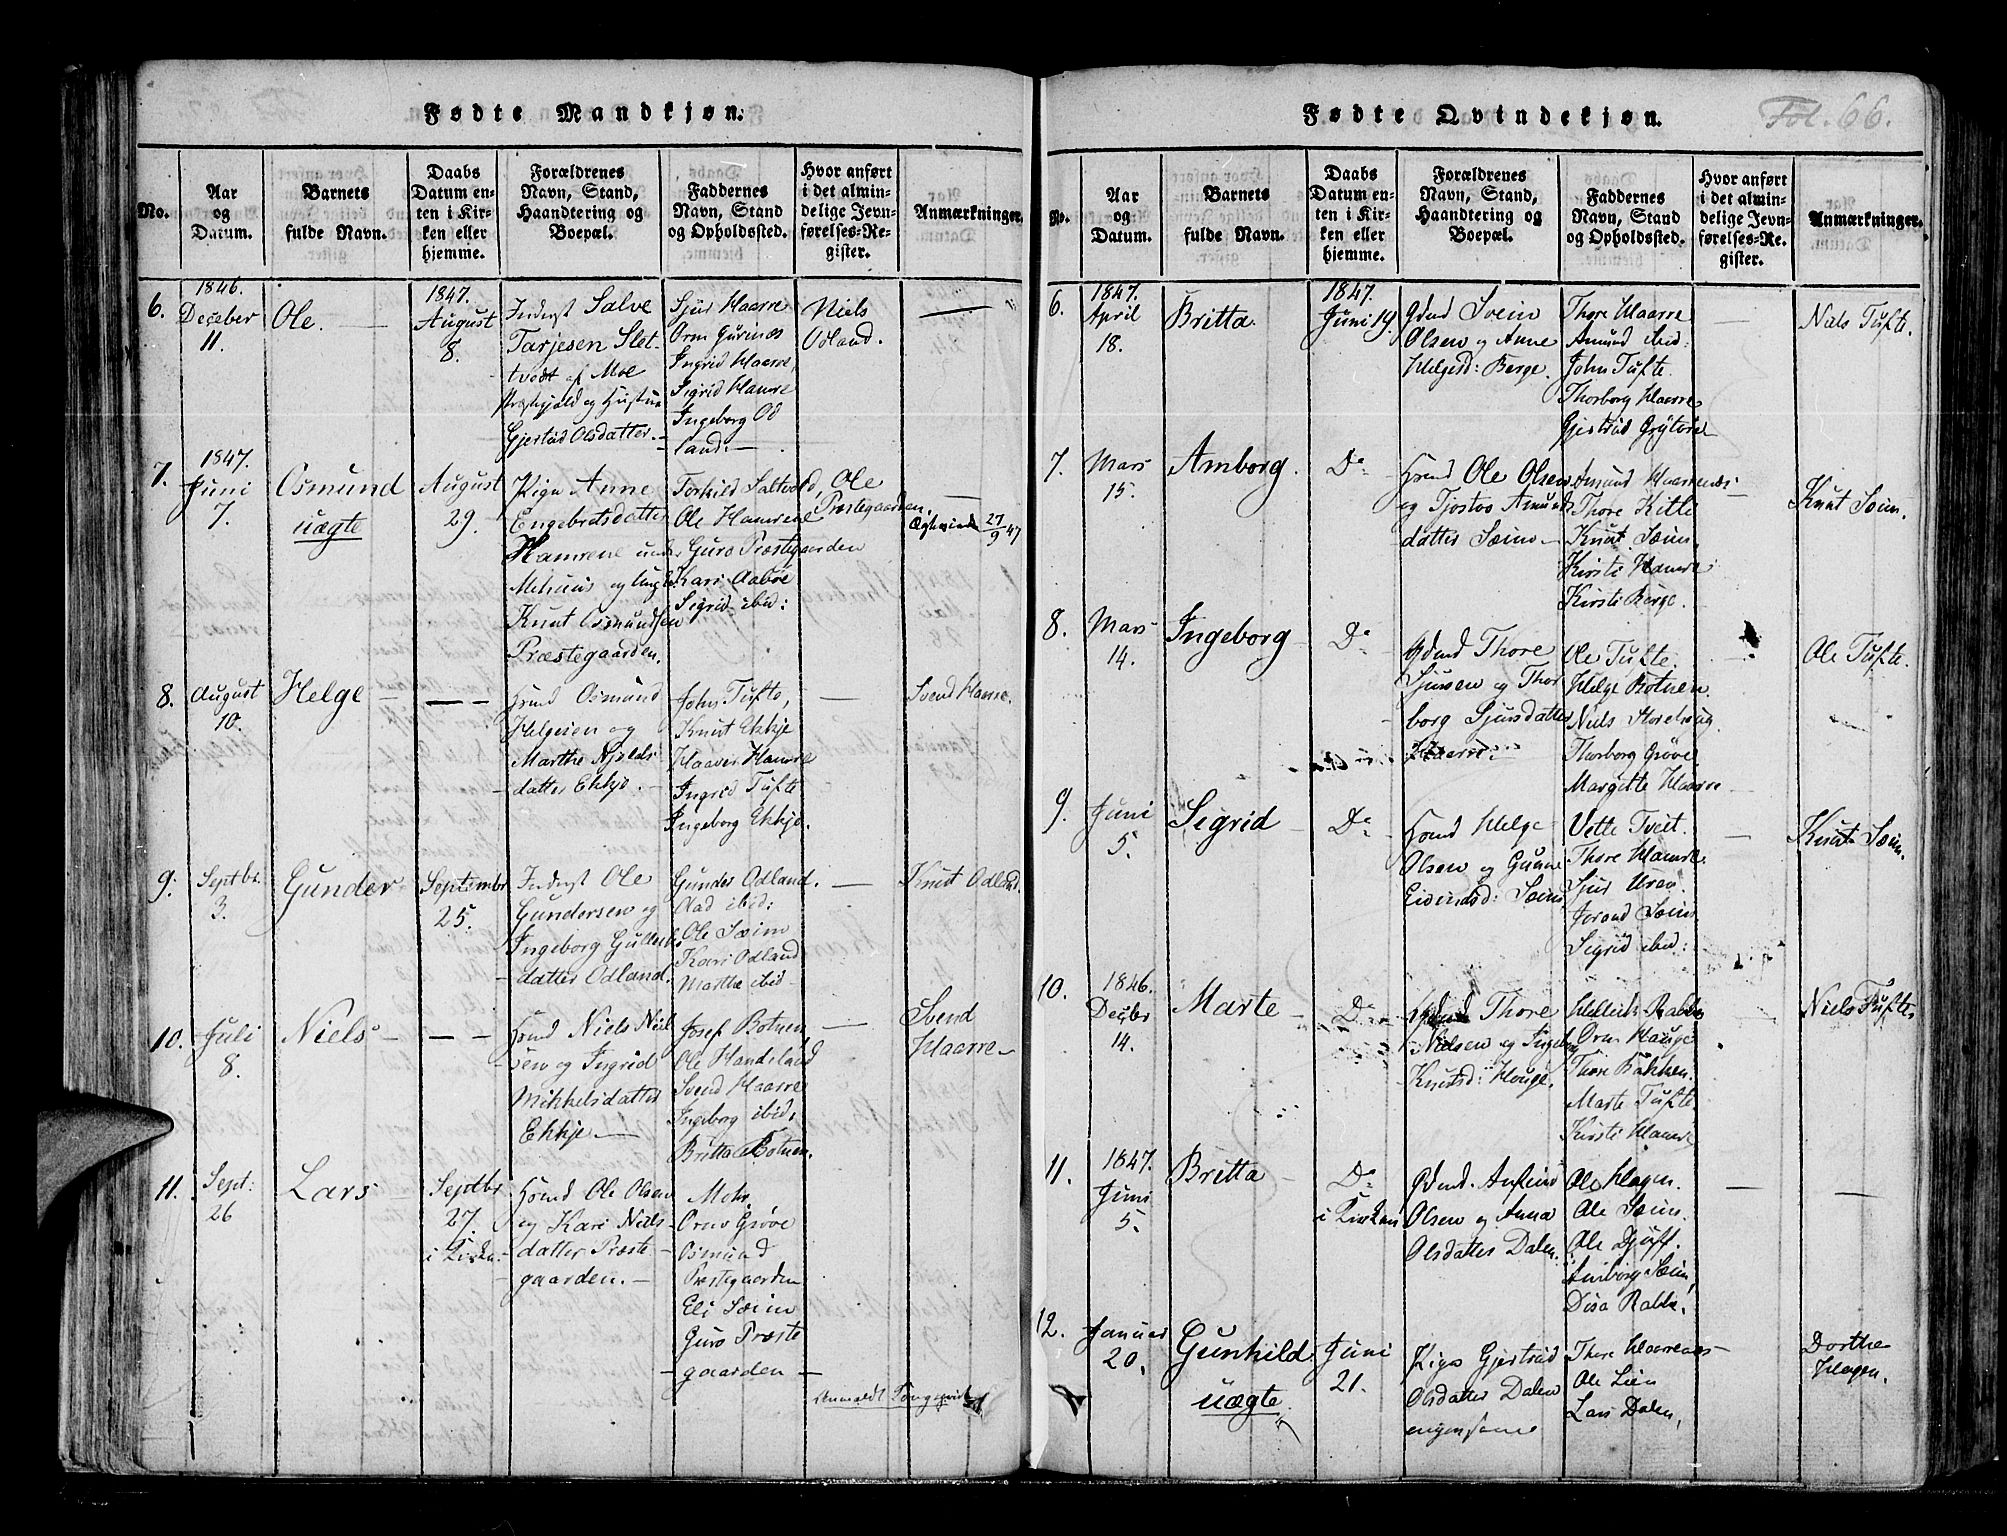 Fødte Mandkjøn.
No.
Aar og Datum.
Barnets fulde Navn.
Daabs Datum enten i Kirken eller hjemme.
Forældrenes Navn, Stand, Haandtering og Boepæl.
Faddernes Navn, Stand og Opholdssted.
Hvor anført i det almindelige Jevnførelses-Register.
Anmærkninger.
6.
1846.
Deceber
11.
Ole.
1847.
August
8.
Inderst Salve
Tarjesen Slet-
tvedt af Moe
Præstgjeld og Hustrue
Gjertrud Olsdatter.
Sjur Haarre
Orm Gurines
Ingrid Haarre,
Sigrid Hamre
Ingeborg Od
land.
Niels
Odland.
7.
1847.
Juni
7.
Osmund
uægte
August
29.
Pige Anne
Engebretsdatter
Hamrene under
Mehuus og Ungk.
Knut Osmundsen
Præstegaarden.
Torkild Saltvold,
Ole Hamrene
Guro Præstegaarden
Kari Aaboe
Sigrid ibid:
Ole
Præstegaarden.
27/9 47
8.
August
10.
Helge
Grmd Osmund
Helgesen og
Marthe Njelds
datter Ekkje.
John Tufte,
Knut Ekkje
Haaver Hamre
Ingrid Tufte
Ingeborg Ekkje.
Svend Haarre.
9.
Septbr.
3.
Gunder
Septembr
25.
Inderst Ole
Gundersen og
Ingeborg Gullerks
datter Odland.
Gunder Odland.
Aad ibid:
Ole Sæim
Kari Odland
Marthe ibid
Knut Odland.
10.
Juli
8.
Niels
Grmd Niels Niel
sen og Ingrid
Mikkelsdatter
Ekkje
Josef Botnen
Ole Handeland
Svend Haarre
Ingeborg ibid,
Britta Botnen.
Svend
Haarre
11.
Sept:
26
Lars
Septbr
27.
i Kirken
Grmd Ole Olsen
og Kari Niels-
datter Præste-
gaarden.
Mohr,
Orm Grøve
Osmund
Præstegaarden
Eli Sæim
Guro Præste
gaarden
Anmeldt
Fødte Qvindekjøn.
Fol. 66.
No.
Aar og Datum.
Barnets fulde Navn.
Daabs Datum enten i Kirken eller hjemme.
Forældrenes Navn, Stand, Haandtering og Boepæl.
Faddernes Navn, Stand og Opholdssted.
Hvor anført i det almindelige Jevnførelses-Register.
Anmærkninger.
6.
1847.
April
18.
Britta.
1847.
Juni 19.
Gdmd Svein
Olsen og Anne
Helgesd: Berge.
Thore Haarre
Amund ibid:
John Tufte.
Thorborg Haarre
Gjertrud Grytøre
Niels Tufte.
7.
Mars
15.
Amborg.
Do
Grmd Ole Olsen
og Tjostvo Amunds
datter Sæim
Amund Haarrenes
Thore Kitle
Knut Sæim
Kirsti Hamre
Kirsti Berge.
Knut Sæim.
8.
Mars
14.
Ingeborg
Do
Gdmd Thore
Sjursen og Thor
borg Sjursdatter
Haarre.
Ole Tufte.
Helge Botnen.
Niels Storehaug
Thorborg Grøve
Margitte Haarre
Ole Tufte.
9.
Juni
5.
Sigrid
Do
Grmd Helge
Olsen og Gunne
Eivindsd: Sæim
Vette Tveit.
Thore Hamre.
Sjur Uren.
Jorand Sæim
Sigrid ibid:
Knut Sæim.
10.
1846.
Decbr
14.
Marte
Do
Gdmd Thore
Nielsen og Ingeborg
Knutsd: Houge.
Hellerik Rabbe
Orm Hauge
Thore Bakken.
Marte Tufte.
Kirsti Hamre
Niels Tufte.
11.
1847.
Juni
5.
Britta
Do
i Kirken
Gdmd. Anfind
Olsen og Anna
Olsdatter Dalen.
Ole Hagen.
Ole Sæim.
Ole Djuff.
Amborg Sæim,
Disa Rabbe.
12.
Januar
20.
Gunhild
uægte.
Juni
21.
Pige Gjertrud
Olsdatter Dalen
Thore Haarrenes
Ole Lien
Lars Dalen,
Dorthe
Hagen.